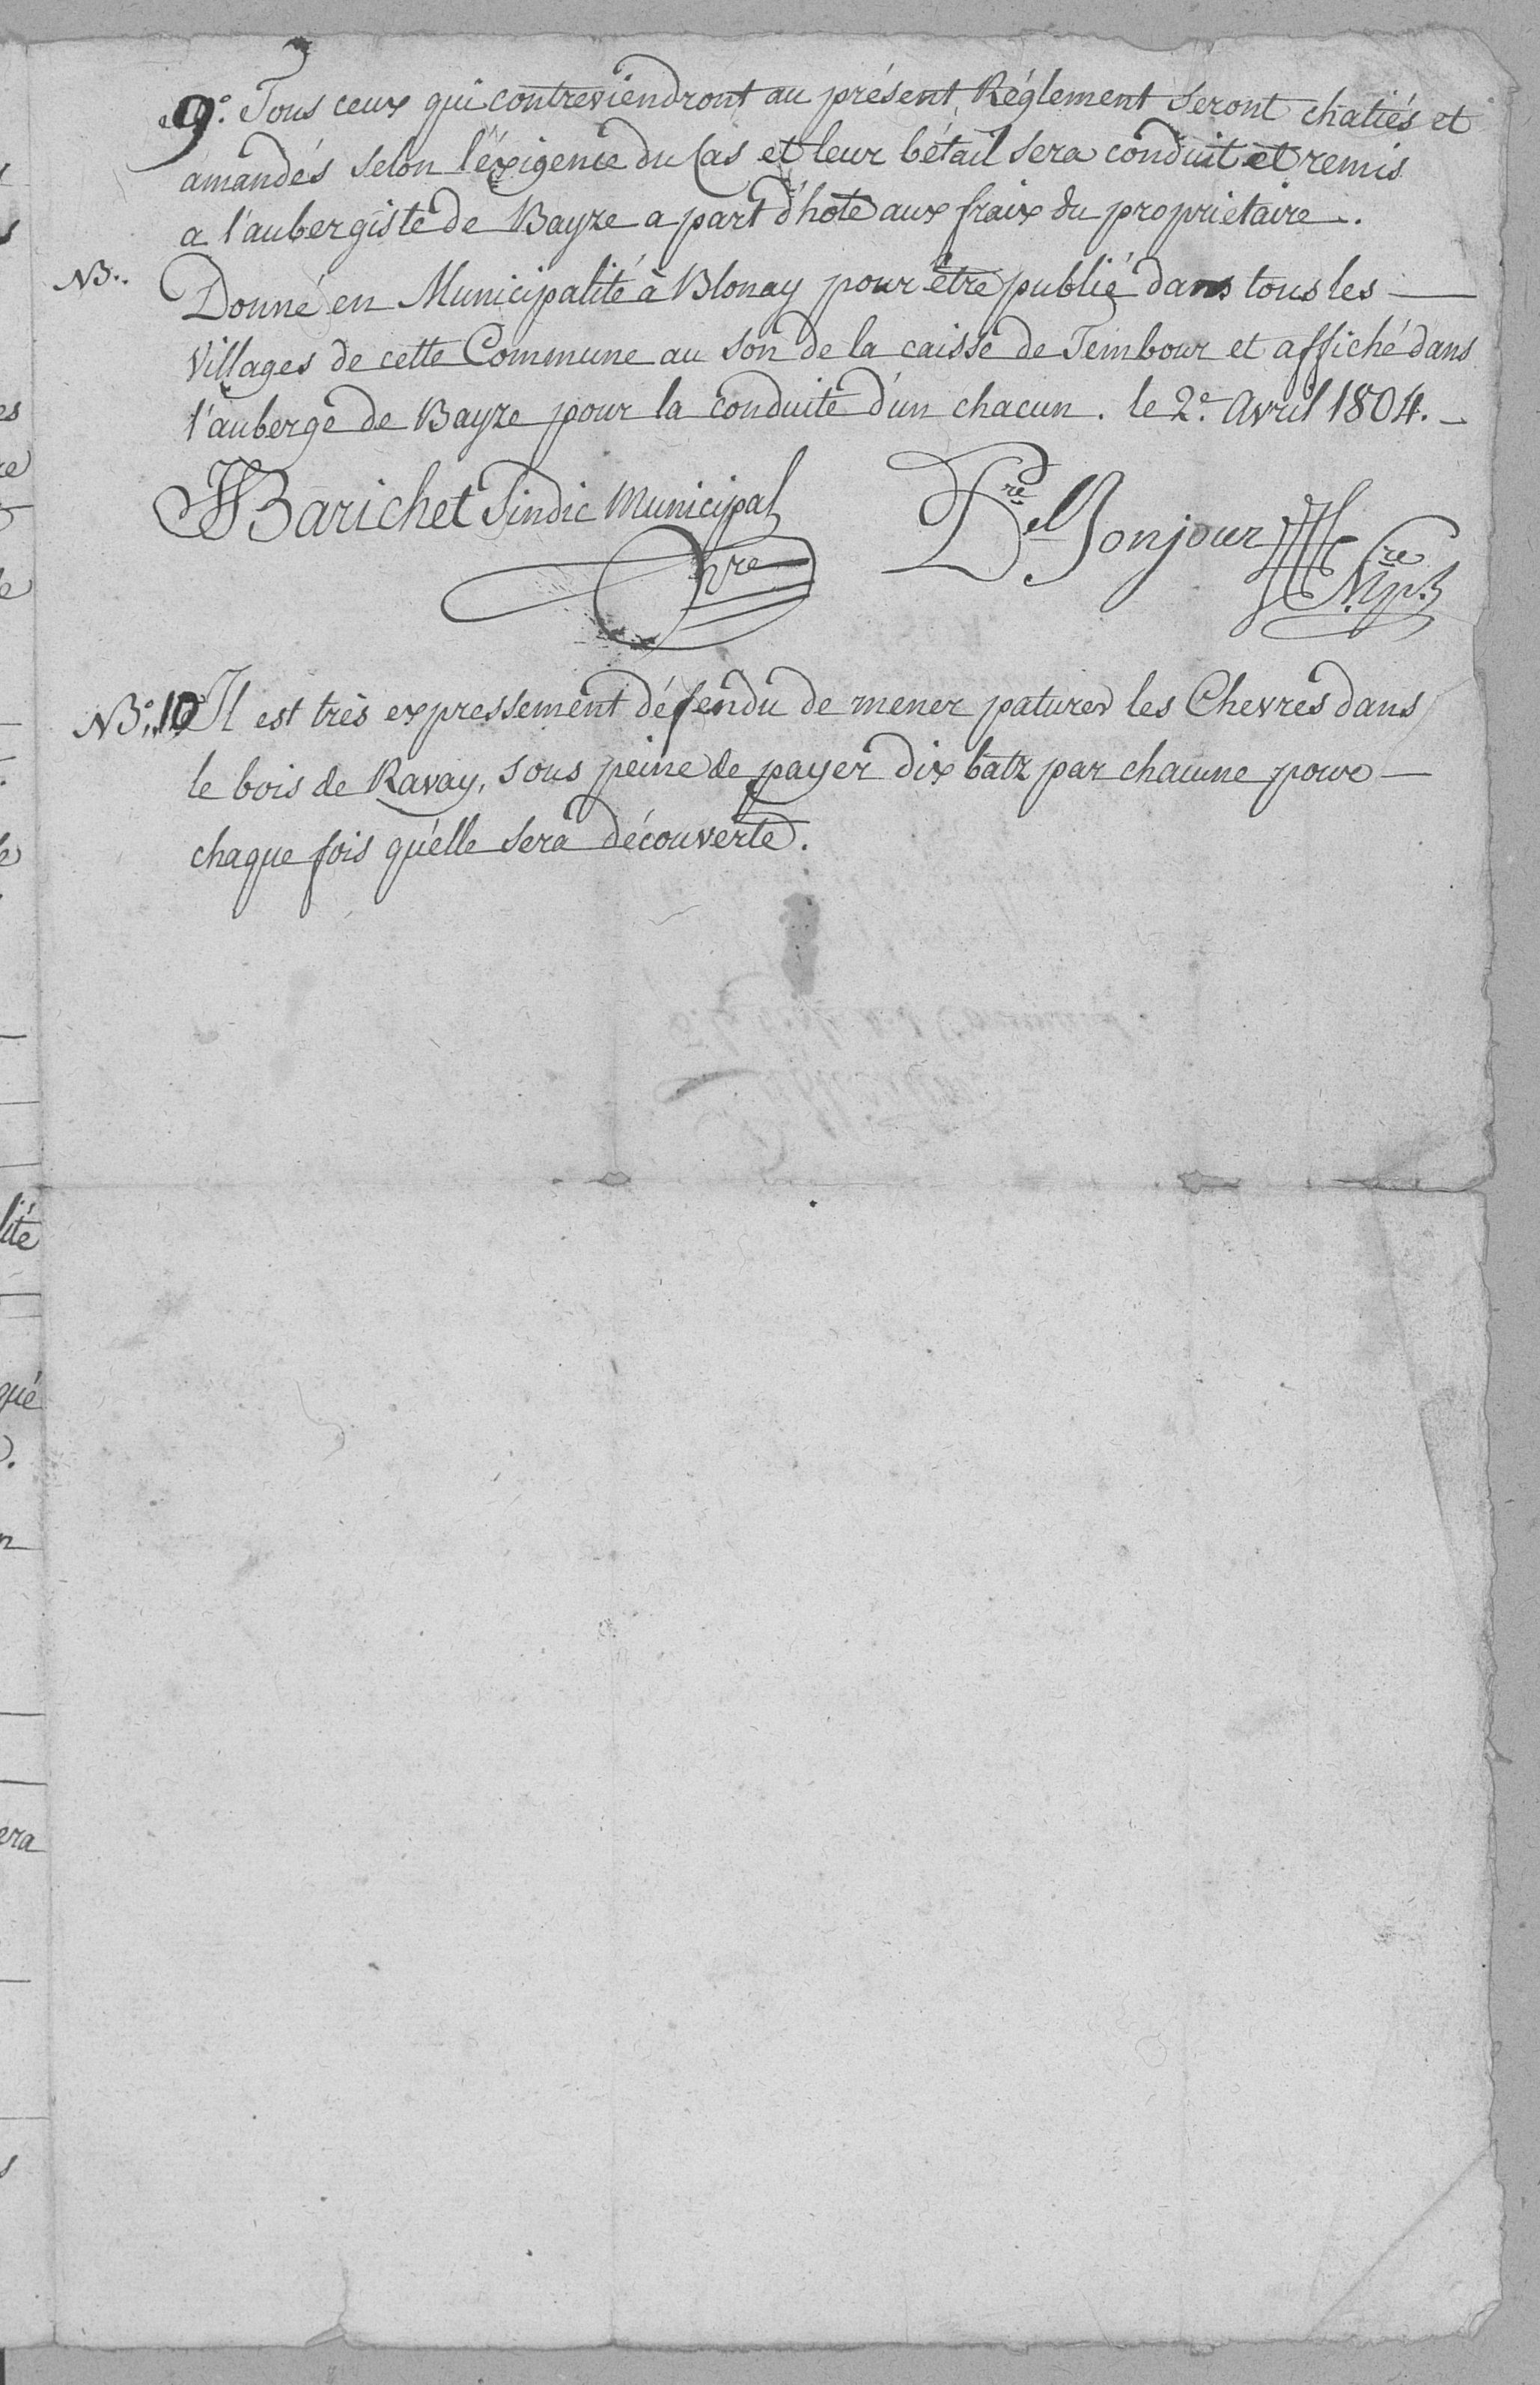 9.° Tous ceux qui contreviendront au présent Réglement seront chatiés et
amandés selon l'éxigence du Cas et leur bétail sera conduit et remis
a l'aubergiste de Bayze a part d'hote aux fraix du proprietaire.
NB.. Donné en Municipalité à Blonay pour être publié dans tous les
Villages de cette Commune au son de la caisse de Tembour et affiché dans
l'auberge de Bayze pour la conduite d'un chacun. le 2.e Avril 1804.
Barichet Sindic Municipal
Bonjour
NB.° 10 Il est très expressement défendu de mener paturer les Chevres dans
le bois de Ravay, sous peine de payer dix batz par chacune pour
chaque fois qu'elle sera découverte.
lité
qué
era